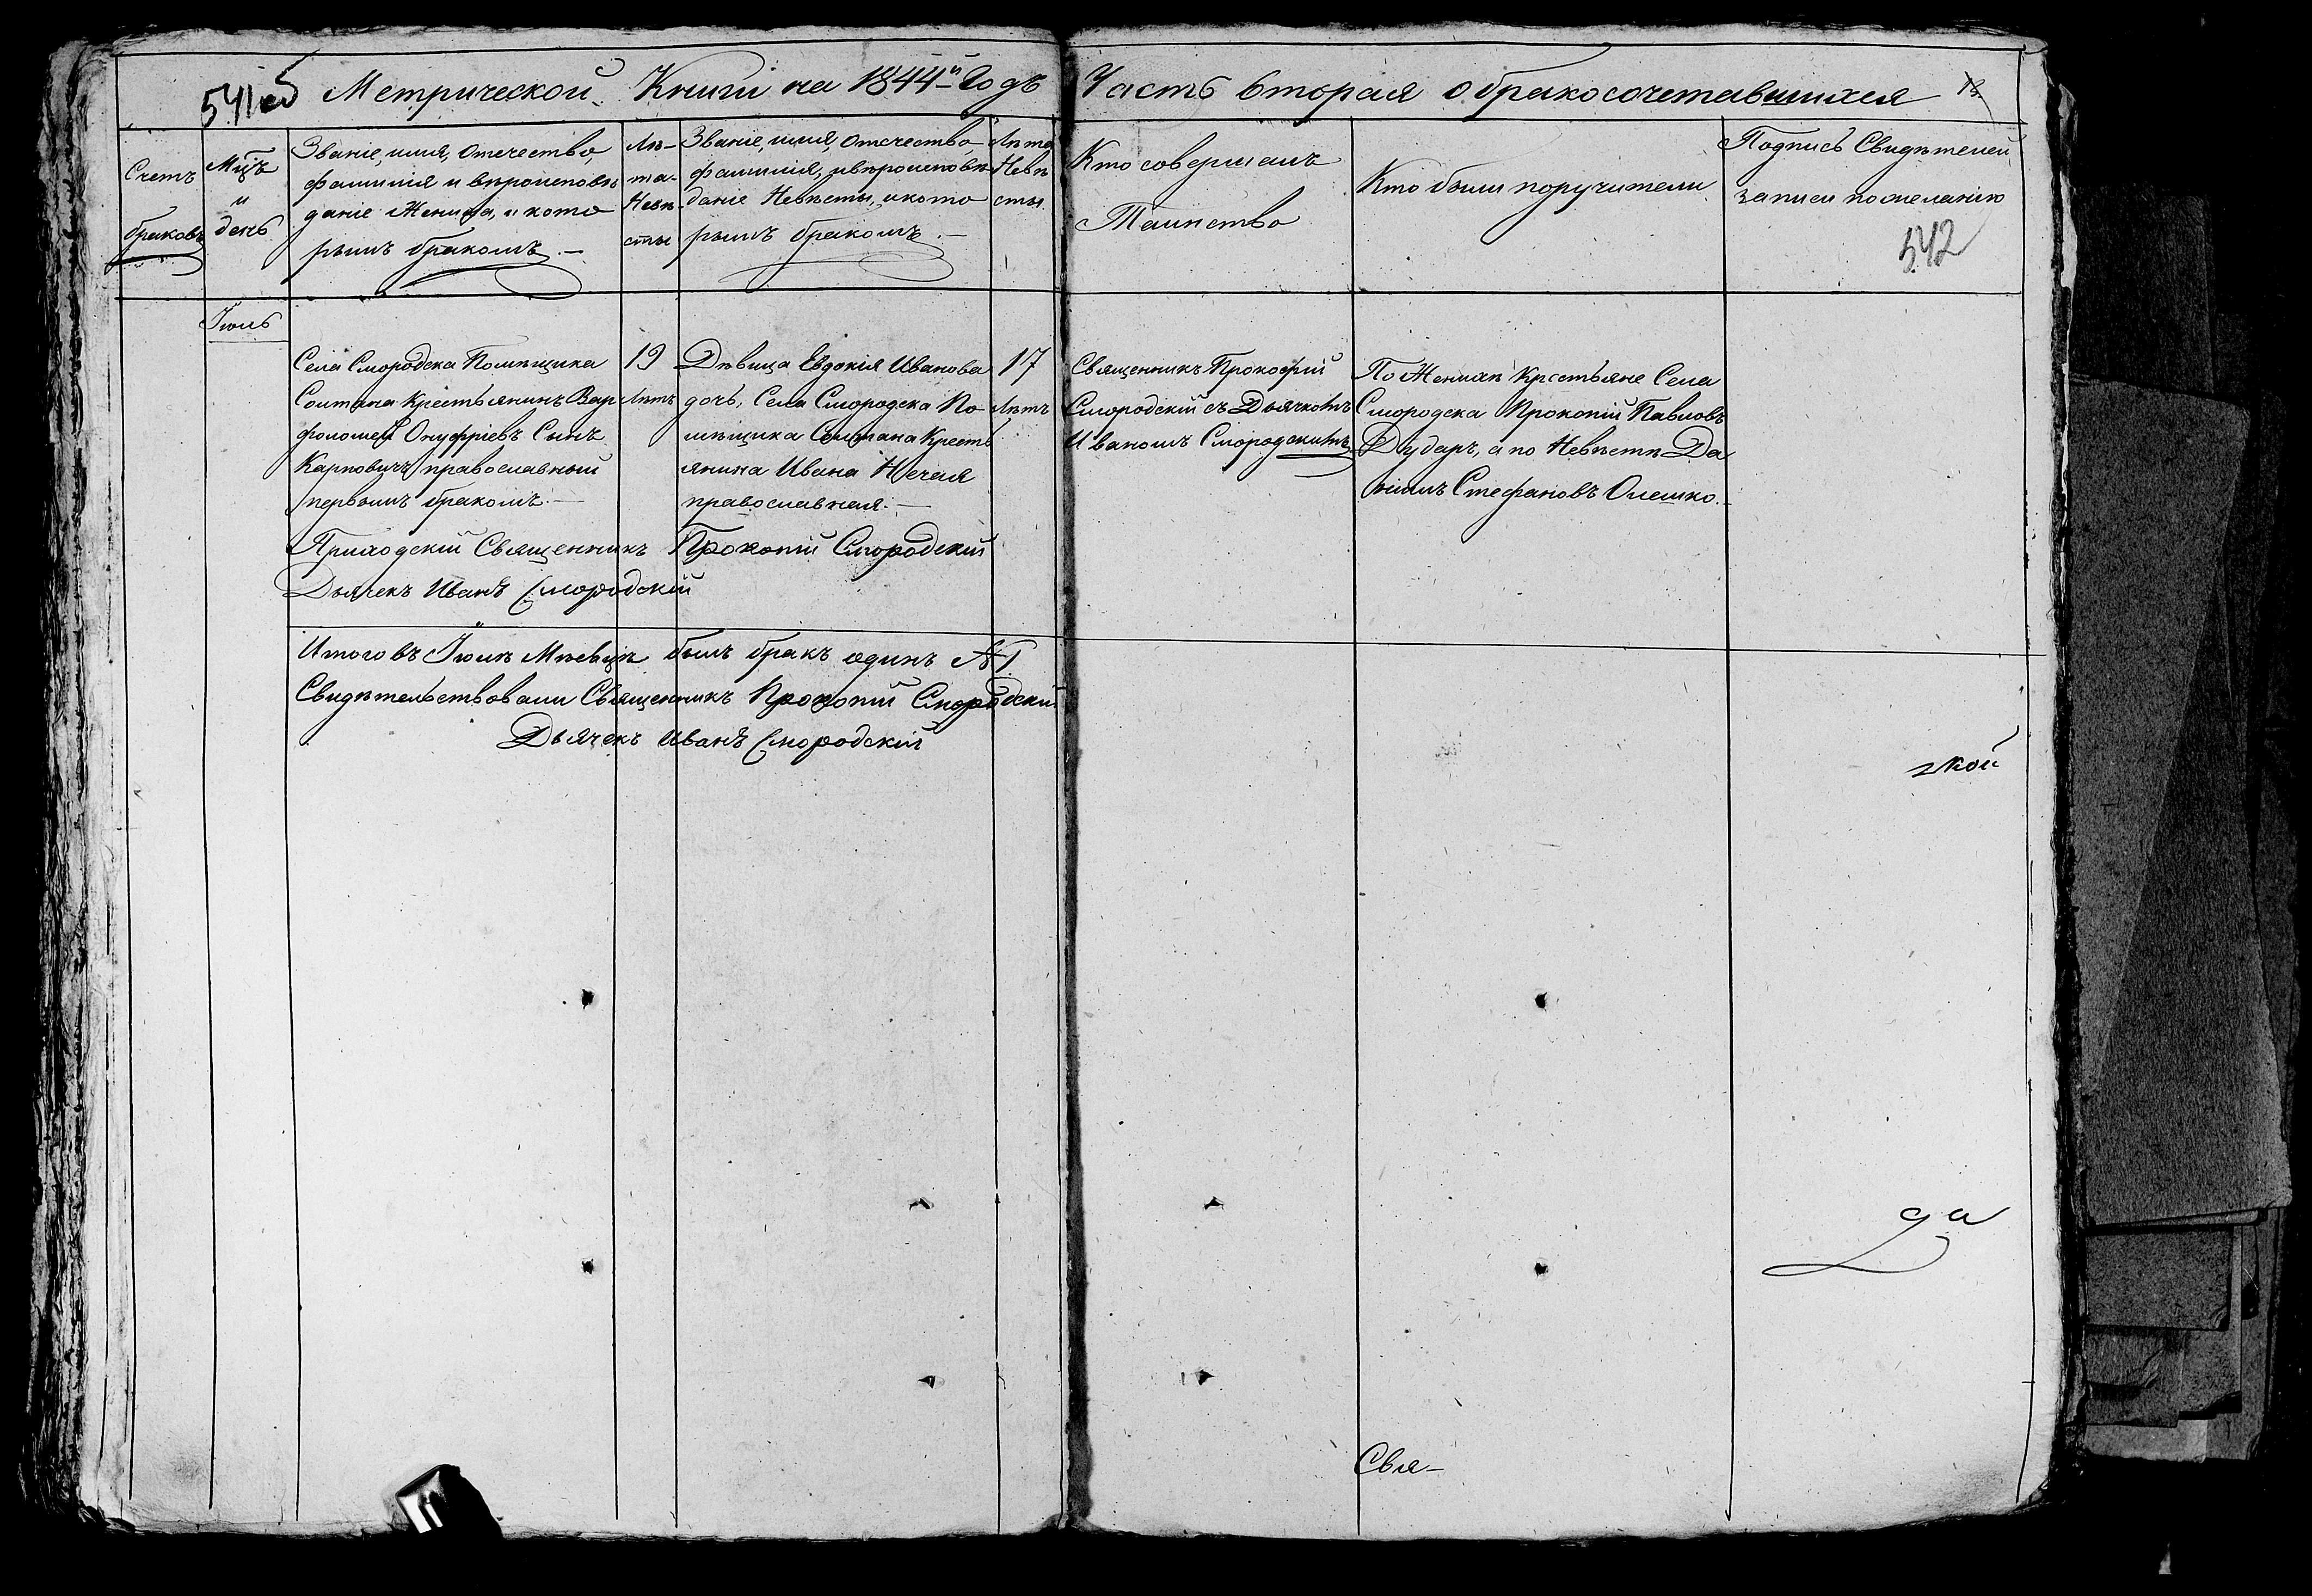 541 об Метрической Книги на 1844й Годъ Часть вторая о бракосочетавшихся 13
Счетъ
браковъ
Мцъ
и
день
Званіе, имя, отечество,
фамилія и вѣроисповѣ
даніе Жениха, и кото
рымъ бракомъ. —
Лѣ-
та-
Невѣ
сты
Званіе, имя, отечество,
фамилія, ивѣроисповѣ
даніе Невѣсты, икото
рымъ бракомъ. —
Лѣта
Невѣ
сты.
Кто совершалъ
Таинство
Кто были поручители
Подпись Свидѣтелей
записи пожеланію
542
Іюль
Села Смородска Помѣщика
Солтана Крестьянинъ Вар
фоломей Онуфріевъ Сынъ
Карповичъ православный
первымъ бракомъ. —
19
Лѣтъ
Дѣвица Евдокія Иванова
дочь, Села Смородска По-
мѣщика Солтана Кресть
янина Ивана Нечая
православная. —
17
Лѣтъ
Священникъ Прокофій
Смородскій съ Дьячкомъ
Иваномъ Смородскимъ
По Женихѣ Крестьяне Села
Смородска Прокопій Павловъ
Дударъ, а по Невѣстѣ Да
ніилъ Стефановъ Олешко. —
Приходскій Священникъ Прокопій Смородскій
Дьячекъ Иванъ Смородскій
Итого въ Іюлѣ Мѣсяцѣ былъ бракъ одинъ №1
Свидѣтельствовали Священникъ Прокопій Смородскій
Дьячекъ Иванъ Смородскій
ской
да
Свя-